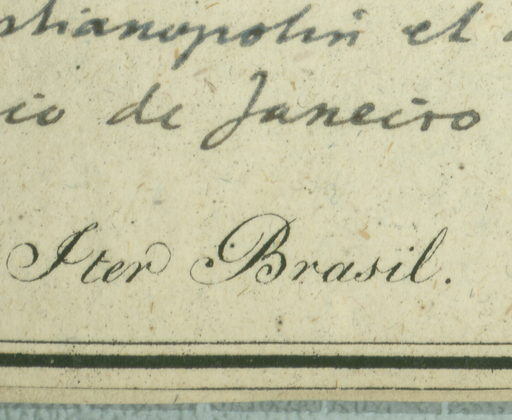 stianopolin et
io de Janeiro
Iter Brasil.